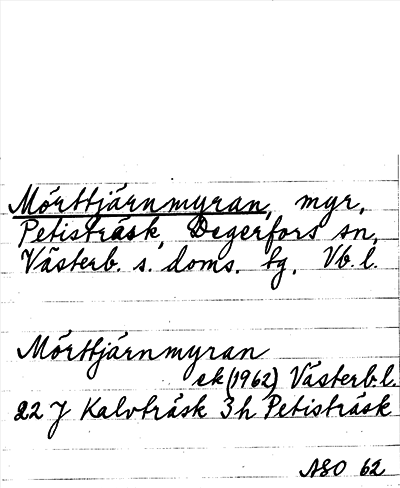 Mörttjärnmyran, myr,
Petisträsk, Degerfors sn,
Västerb. s. doms. tg, Vb. l.
Mörttjärnmyran
ek (1962) Västerb. l.
22 J Kalvträsk 3h Petisträsk
ASO 62